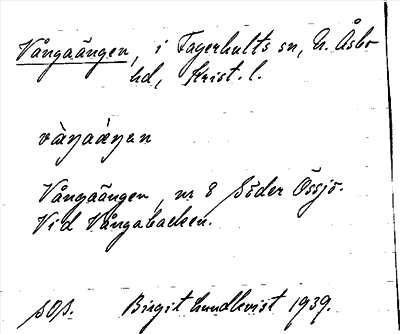 Vångaängen, i Fagerhults sn, N. Åsbo
hd, Krist. l.
vàŋaáŋən
Vångaängen, nr 8 Söder Össjö.
Vid Vångabacken.
Birgit Lundkvist 1939.